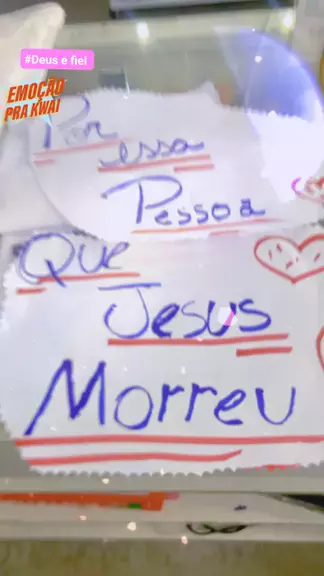 #Deus e fiel
EMOÇÃO
PRA KWAI
Por
essa
Pessoa
Que
Jesus
Morreu